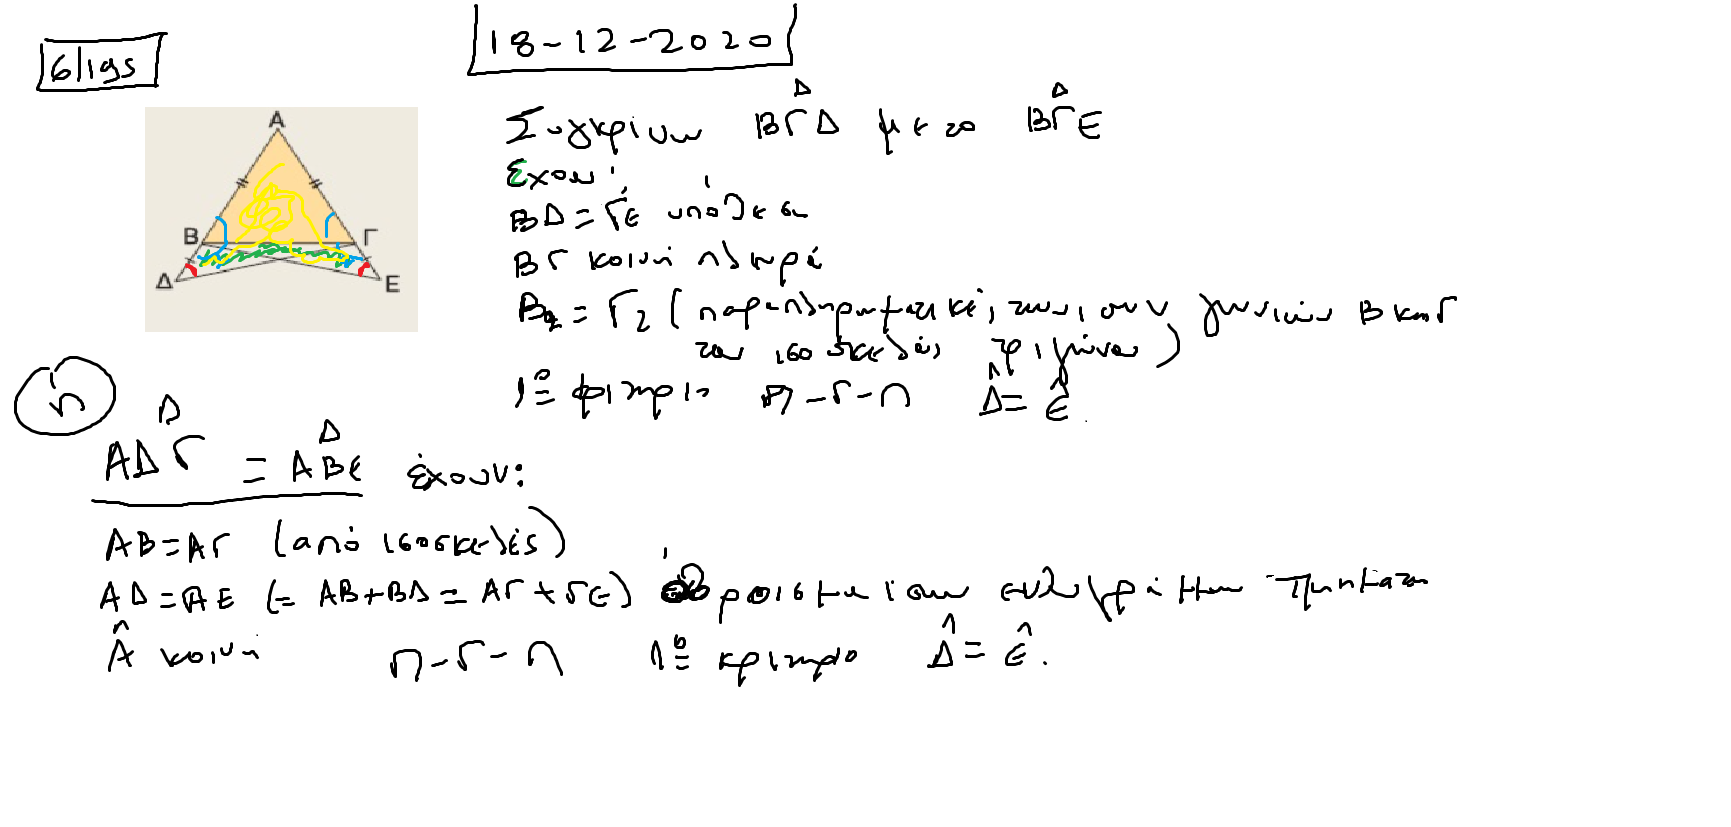 6/195
18-12-2020
Α
Β Γ
Δ Ε
Συγκρίνω ΒΓΔ με το ΒΓΕ
Έχουν:
ΒΔ = ΓΕ υπόθεση
ΒΓ κοινή πλευρά
Β2 = Γ2 (παραπληρωματικές των ίσων γωνιών Β και Γ
του ισοσκελές τριγώνου)
1ο κριτήριο Π-Γ-Π Δ̂ = Ε̂.
ή
ΑΔΓ = ΑΒΕ έχουν:
ΑΒ=ΑΓ (από ισοσκελές)
ΑΔ=ΑΕ (= ΑΒ+ΒΔ = ΑΓ+ΓΕ) άθροισμα ίσων ευθυγράμμων τμημάτων
Â κοινή Π-Γ-Π 1ο κριτήριο Δ̂ = Ε̂.